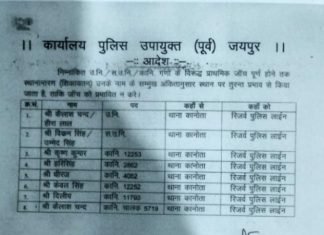 ।। कार्यालय पुलिस उपायुक्त (पूर्व) जयपुर ।।
-:: आदेश ::-
निम्नांकित उ.नि./स.उ.नि./कानि. गणों के विरूद्ध प्राथमिक जाँच पूर्ण होने तक
स्थानान्तरण (शिकायतन) उनके नाम के सम्मुख अंकितानुसार स्थान पर तुरन्त प्रभाव से किया
जाता है, ताकि जाँच को प्रभावित न करे।
क्र.सं. नाम पद कहाँ से कहाँ को
1. श्री कैलाश चन्द / हीरा लाल उ.नि. थाना कानोता रिजर्व पुलिस लाईन
2. श्री विक्रम सिंह / उम्मेद सिंह थाना कानोता रिजर्व पुलिस लाईन
3. श्री कृष्ण कुमार कानि. 12253 थाना कानोता रिजर्व पुलिस लाईन
4. श्री हरिसिंह कानि. 2862 थाना कानोता रिजर्व पुलिस लाईन
5. श्री धीरज कानि. 4062 थाना कानोता रिजर्व पुलिस लाईन
6. श्री केवल सिंह कानि. 12252 थाना कानोता रिजर्व पुलिस लाईन
7. श्री दिलीप कानि. 11793 थाना कानोता रिजर्व पुलिस लाईन
8. श्री कैलाश चन्द कानि. चालक 5719 थाना कानोता रिजर्व पुलिस लाईन